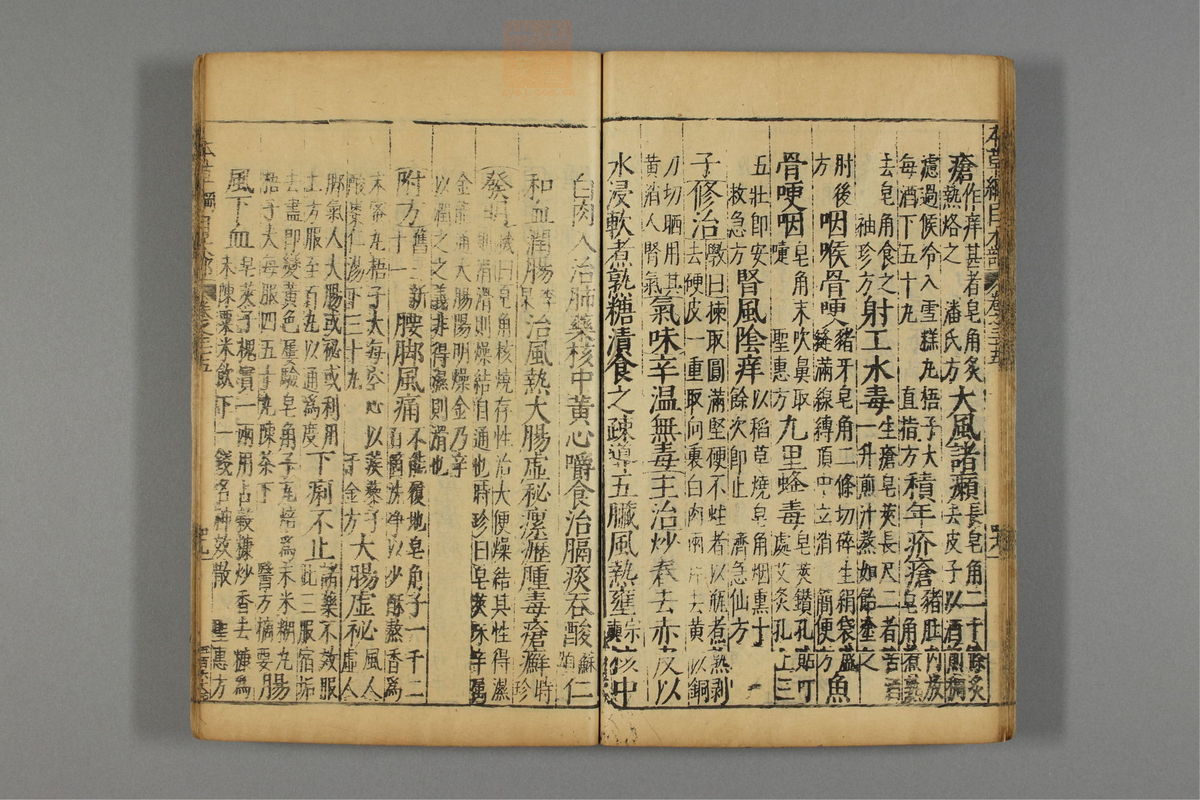 本草綱目木部 卷之三十五
瘡作痒甚者皂角炙熱烙之 潘氏方 大風諸癩長皂角二十條炙去皮子以酒煎稠
濾過候冷入雪糕丸梧子大每酒下五十丸 直指方 積年疥瘡猪肚內放皂角煮熟
去皂角食之 袖珍方 射工水毒生瘡皂莢長尺二者苦酒一升煎汁熬如飴塗之
肘後方 咽喉骨哽猪牙皂角二條切碎生絹袋盛縫滿線縛項中立消 簡便方 魚
骨哽咽皂角末吹鼻取嚏 聖惠方 九里蜂毒皂莢鑽孔貼叮處艾灸孔上三
五壯即安 救急方 腎風陰痒以稻草燒皂角烟熏十餘次即止 濟急仙方
子修治斅曰揀取圓滿堅硬不蛀者以瓶煮熟剝去硬皮一重取向裏白肉兩片去黃以銅
刀切晒用其黃消人腎氣 氣味辛温無毒主治炒舂去赤皮以
水浸軟煮熟糖漬食之疎導五臟風熱壅宗奭核中
白肉入治肺藥核中黃心嚼食治膈痰吞酸蘇頌仁
和血潤腸李杲治風熱大腸虛秘瘰癧腫毒瘡癬時珍
發明機曰皂角核燒存性治大便燥結其性得濕則滑滑則燥結自通也時珍曰皂莢味辛屬
金能通大腸陽明燥金乃辛以潤之之義非得濕則滑也
附方舊三新十一 腰脚風痛不能履地皂角子一千二百個洗净以少酥熬香為
末蜜丸梧子大每空心以蒺藜子酸棗仁湯下三十丸 千金方 大腸虛秘風人虛人
脚氣人大腸或秘或利用上方服至百丸以通為度 下痢不止諸藥不效服此三服宿垢
去盡即變黃色屢驗皂角子瓦焙為末米糊丸梧子大每服四五十丸陳茶下 醫方摘要 腸
風下血皂莢子槐實一兩用占穀糠炒香去糠為末陳粟米飲下一錢名神效散 聖惠方
本草綱目木部 卷之三十五